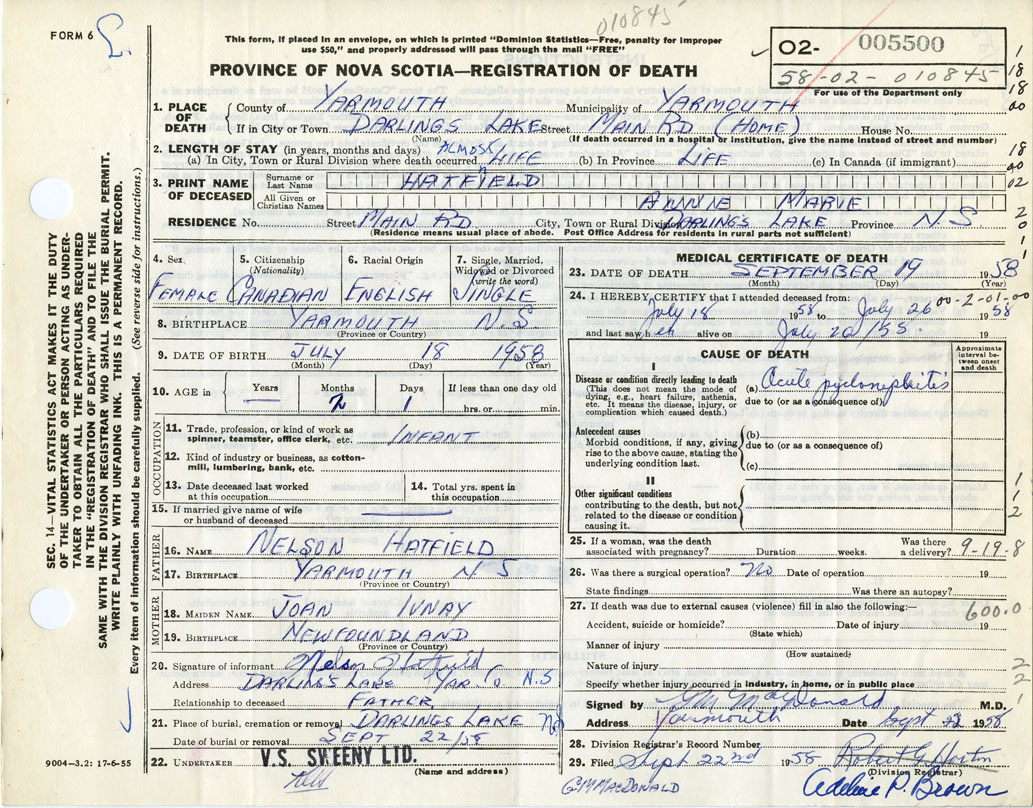 FORM 6
010845
This form, if placed in an envelope, on which is printed "Dominion Statistics—Free, penalty for improper
use $50," and properly addressed will pass through the mail "FREE"
PROVINCE OF NOVA SCOTIA—REGISTRATION OF DEATH
O2- 005500
58-02-010845
For use of the Department only
1. PLACE OF DEATH
County of YARMOUTH Municipality of YARMOUTH
If in City or Town DARLINGS LAKE Street MAIN RD (HOME) House No.
(Name) (If death occurred in a hospital or institution, give the name instead of street and number)
2. LENGTH OF STAY (in years, months and days) ALMOSS
(a) In City, Town or Rural Division where death occurred LIFE (b) In Province LIFE (c) In Canada (if immigrant)
3. PRINT NAME OF DECEASED
Surname or Last Name HATFIELD
All Given or Christian Names ANNIE MARIE
RESIDENCE No. Street MAIN RD City, Town or Rural Division DARLINGS LAKE Province N S
(Residence means usual place of abode. Post Office Address for residents in rural parts not sufficient)
4. Sex 5. Citizenship (Nationality) 6. Racial Origin 7. Single, Married, Widowed or Divorced (write the word)
FEMALE CANADIAN ENGLISH SINGLE
8. BIRTHPLACE YARMOUTH N.S
(Province or Country)
9. DATE OF BIRTH JULY 18 1958
(Month) (Day) (Year)
10. AGE in Years Months Days If less than one day old
2 1 hrs. or min.
OCCUPATION
11. Trade, profession, or kind of work as spinner, teamster, office clerk, etc. INFANT
12. Kind of industry or business, as cotton-mill, lumbering, bank, etc.
13. Date deceased last worked at this occupation
14. Total yrs. spent in this occupation
15. If married give name of wife or husband of deceased
FATHER
16. NAME NELSON HATFIELD
17. BIRTHPLACE YARMOUTH N S
(Province or Country)
MOTHER
18. MAIDEN NAME JOAN IVNAY
19. BIRTHPLACE NEWFOUNDLAND
(Province or Country)
20. Signature of informant Nelson Hatfield
Address DARLING'S LAKE YAR Co N.S.
Relationship to deceased FATHER
21. Place of burial, cremation or removal DARLINGS LAKE NS
Date of burial or removal SEPT 22/58
22. UNDERTAKER V.S. SWEENY LTD.
(Name and address)
9004—3.2: 17-6-55
SEC. 14—VITAL STATISTICS ACT MAKES IT THE DUTY
OF THE UNDERTAKER OR PERSON ACTING AS UNDER-
TAKER TO OBTAIN ALL THE PARTICULARS REQUIRED
IN THE "REGISTRATION OF DEATH" AND TO FILE THE
SAME WITH THE DIVISION REGISTRAR WHO SHALL ISSUE THE BURIAL PERMIT.
WRITE PLAINLY WITH UNFADING INK. THIS IS A PERMANENT RECORD.
Every item of information should be carefully supplied. (See reverse side for instructions.)
MEDICAL CERTIFICATE OF DEATH
23. DATE OF DEATH SEPTEMBER 19 1958
(Month) (Day) (Year)
24. I HEREBY CERTIFY that I attended deceased from:
00-2-01-00
July 18 1958 to July 26 1958
and last saw her alive on July 26/58.
CAUSE OF DEATH
Approximate interval between onset and death
I
Disease or condition directly leading to death (a) Acute pyelonephritis
(This does not mean the mode of dying, e.g., heart failure, asthenia, etc. It means the disease, injury, or complication which caused death.)
due to (or as a consequence of)
Antecedent causes
Morbid conditions, if any, giving rise to the above cause, stating the underlying condition last.
(b)
due to (or as a consequence of)
(c)
II
Other significant conditions
contributing to the death, but not related to the disease or condition causing it.
25. If a woman, was the death associated with pregnancy? Duration weeks. Was there a delivery? 9-19-8
26. Was there a surgical operation? No Date of operation 19
State findings Was there an autopsy?
27. If death was due to external causes (violence) fill in also the following:— 600.0
Accident, suicide or homicide? Date of injury 19
(State which)
Manner of injury
(How sustained)
Nature of injury
Specify whether injury occurred in industry, in home, or in public place
Signed by G M MacDonald M.D.
Address Yarmouth Date Sept 22 1958
28. Division Registrar's Record Number
29. Filed Sept 22nd 1958 Robert G Horton
(Division Registrar)
G M MACDONALD Adeline P. Brown